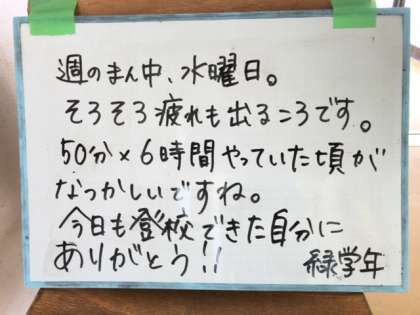 週のまん中、水曜日。
そろそろ疲れも出るころです。
50分×6時間やっていた頃が
なつかしいですね。
今日も登校できた自分に
ありがとう!!
緑学年